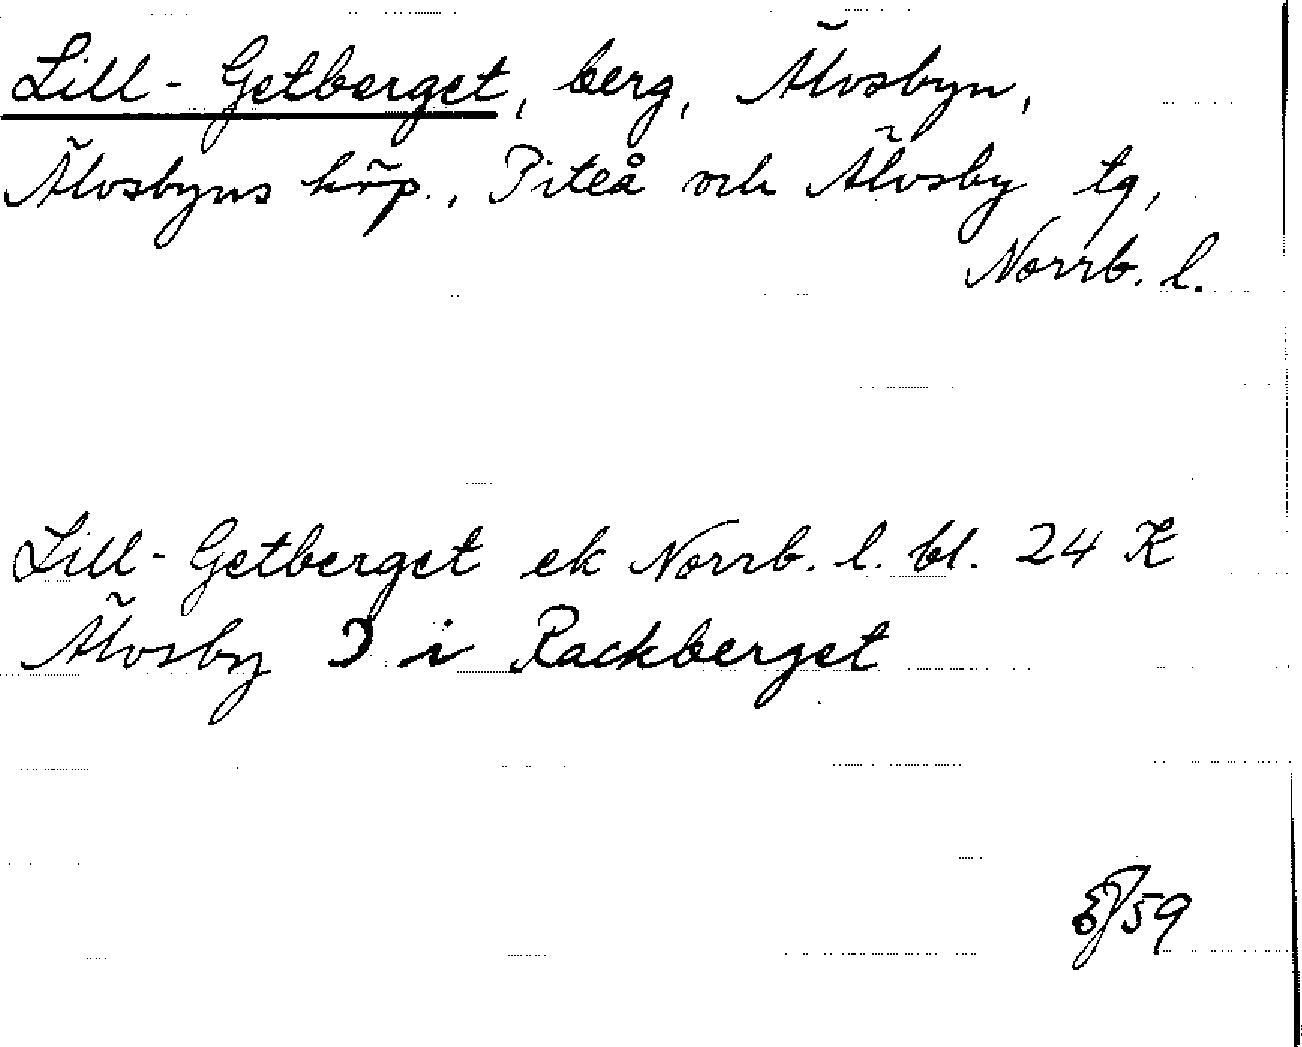 Lill-Getberget, berg, Älvsbyn,
Älvsbyns köp., Piteå och Älvsby tg,
Norrb. l.
Lill-Getberget ek Norrb. l. bl. 24 K
Älvsby J i Rackberget
59